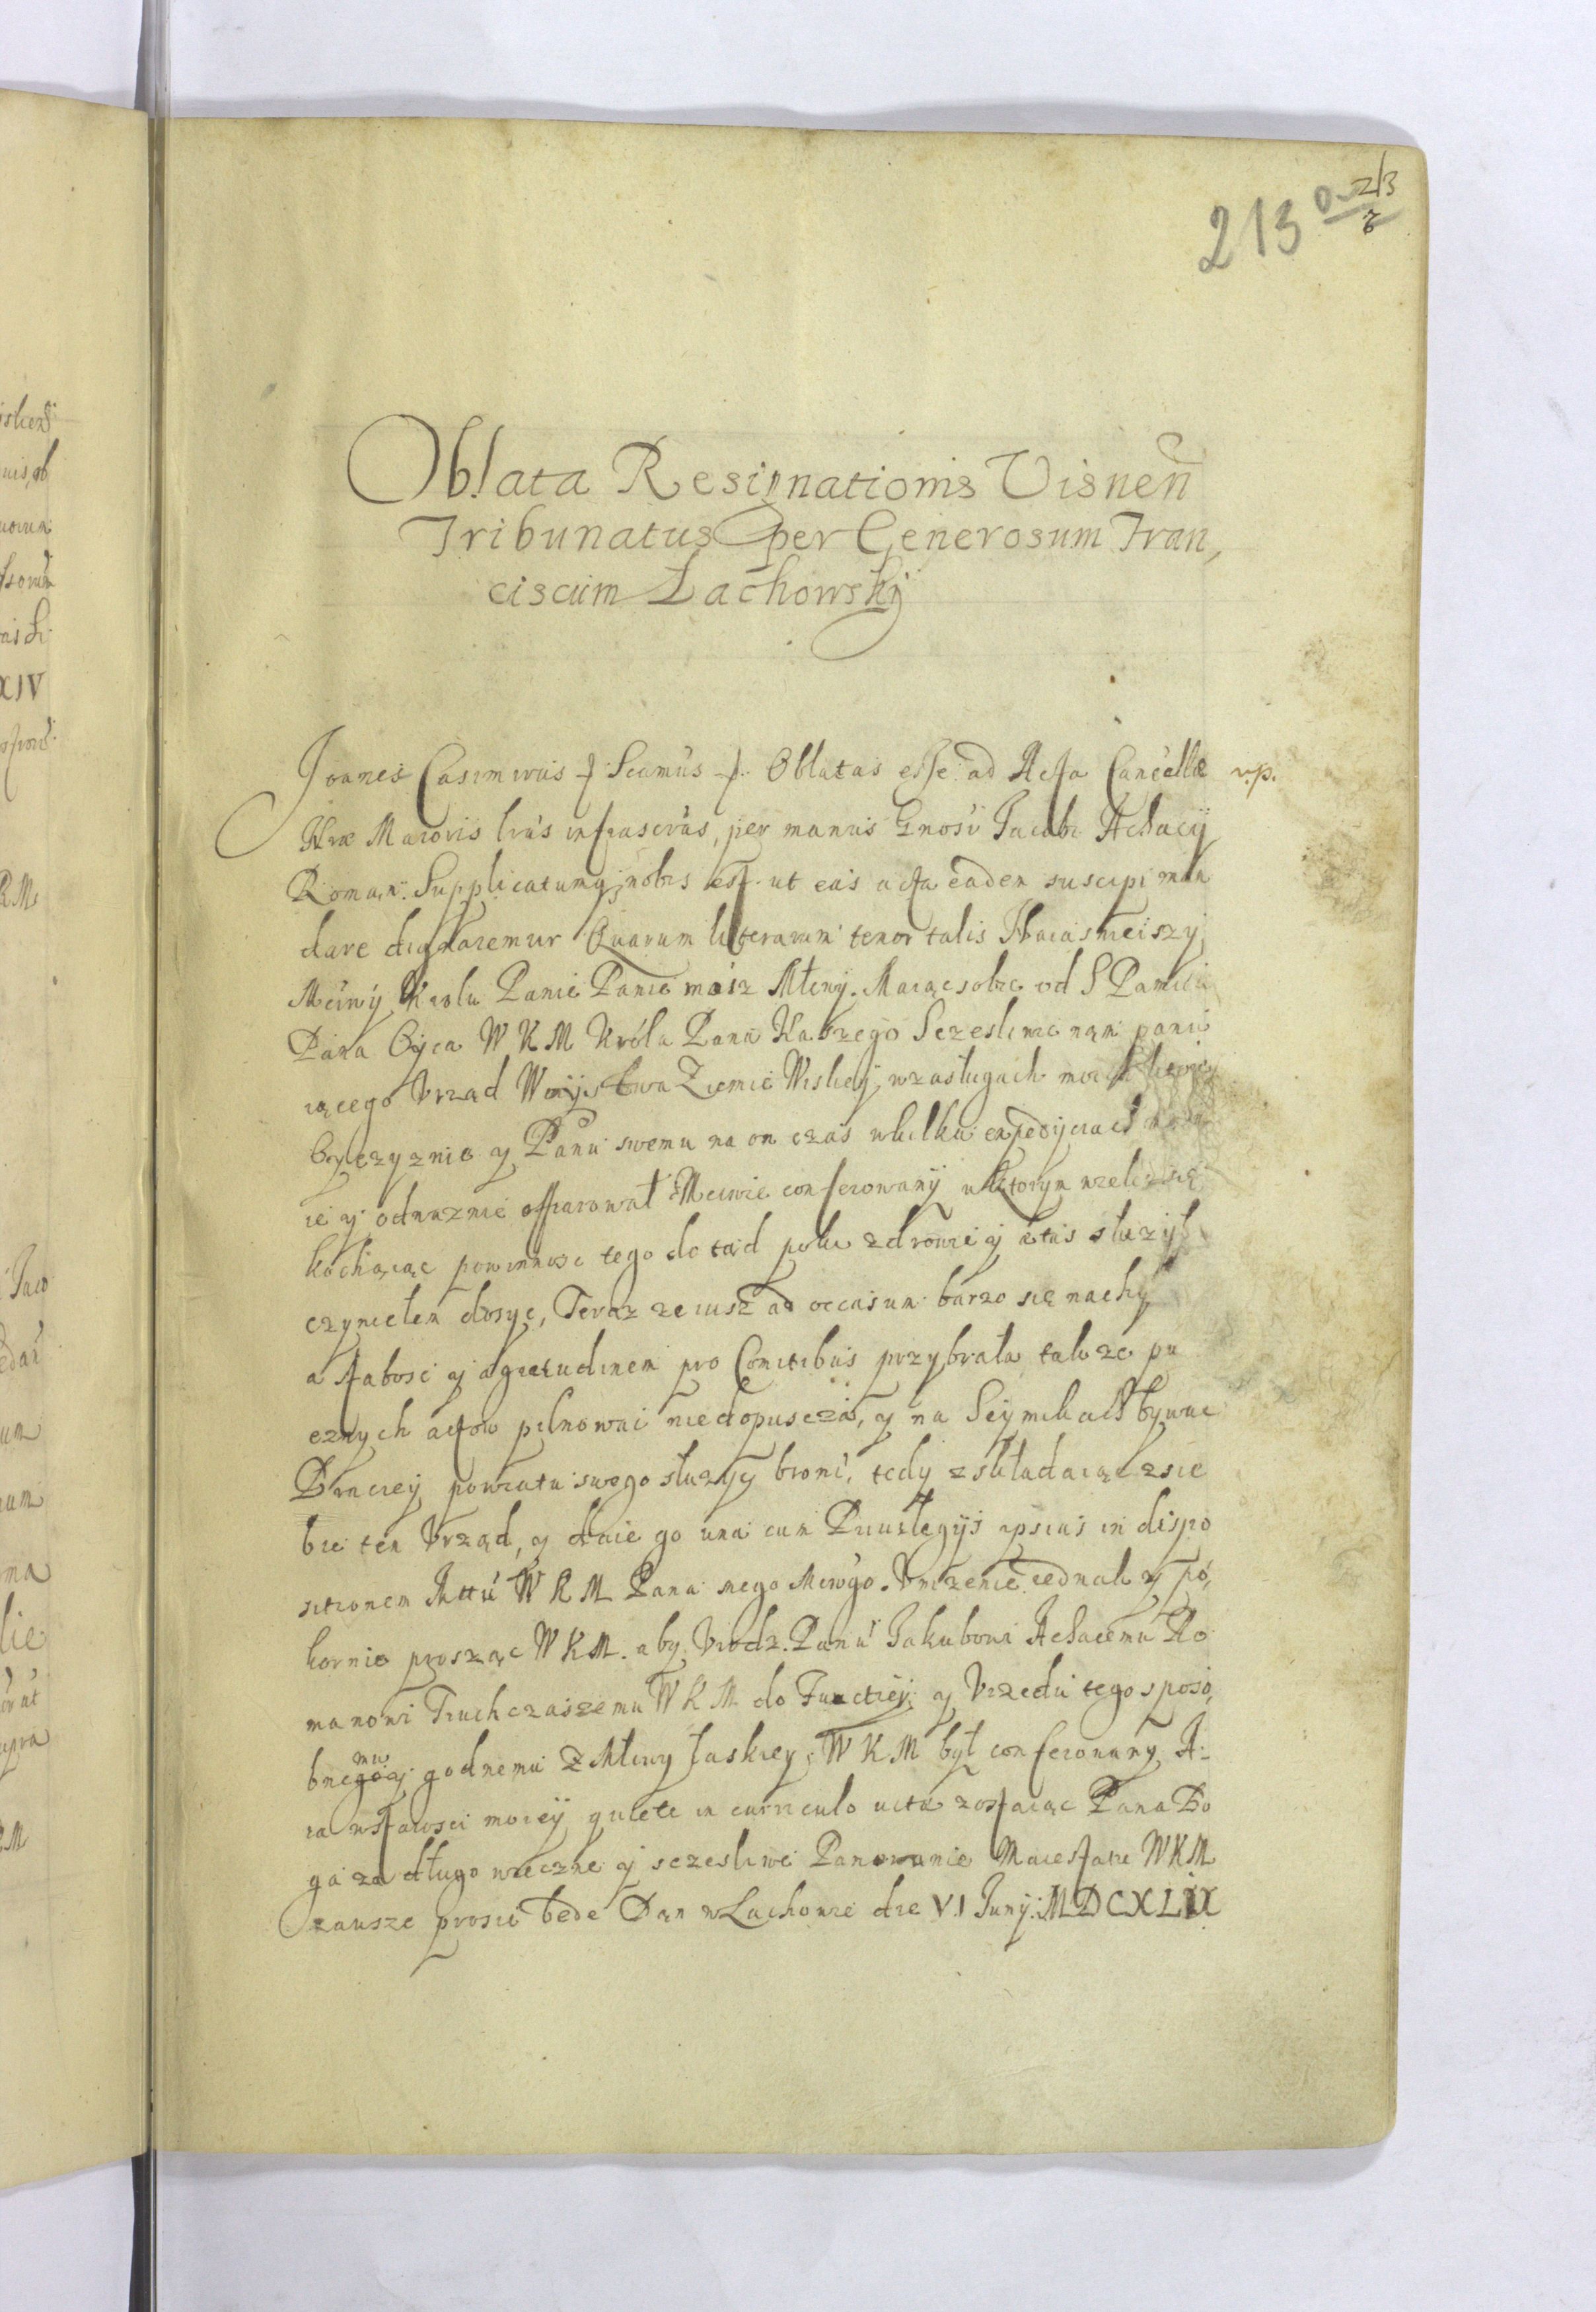 213
213
Oblata Resignationis Visnen
Tribunatus per Generosum Fran,
ciscum Łachowskij
Joanes Casimirus f. Scimus f. Oblatas esse ad Acta Cancellæ
r.p.
Nræ Maioris lras infrascras, per manus Gnosi Jacobi Achacij
Roman. Supplicatumq; nobis est. ut eas acta eadem suscipi man
dare dignaremur Quarum literarum tenor talis Naiasnieiszy
Mciwy Krolu Panie Panie moÿ Młciwy. Maiąc sobie od S Pamięci
Pana Oyca W K M Króla Pana Naszego Sczesliwie nąm panu
iącego Vrząd Woyistwa Ziemie Wiskiey, w zasługach moich
Oyczyznie y Panu swemu na on czas w kilku expedijciach
ie y odwaznie offiarował Mciwie conferowany w ktorym
kochaiąc powinnosc tego do tąd poki zdrowie y ætas słuzył
czyniełem dosyc, Teraz ze iusz ad occasum barzo się nachy
a słabosc y ægritudinem pro Comitibus przybrała tak ze pu
cznych actow pilnowac niedopuscza, y na Seymikach bywac
Braciey powiatu swego słuzyc broni, tedy zskładaiąc z sie
bie ten Vrząd, y daie go una cum Priuilegijs ipsius in dispo
sitionem Mttu W K M Pana mego Mciwgo. Vnizenie iednak y po,
kornie prosząc W K M. aby Vrodz. Panu Jakubowi Achacemu Ro
manowi Truchczaszemu W K M do Functiey y Vrzedu tego sposo,
bnegomu y godnemu z Młciwy łaskiey W K M był conferowany, A
ia w starosci moiey quiete in curriculo uitæ zostaiąc Pana Bo
ga za długo wieczne y sczesliwe Panowanie Maiestatu WKM
zawsze prosic bede Dąn w Łachowie die VI Junÿ. MDCXLIX